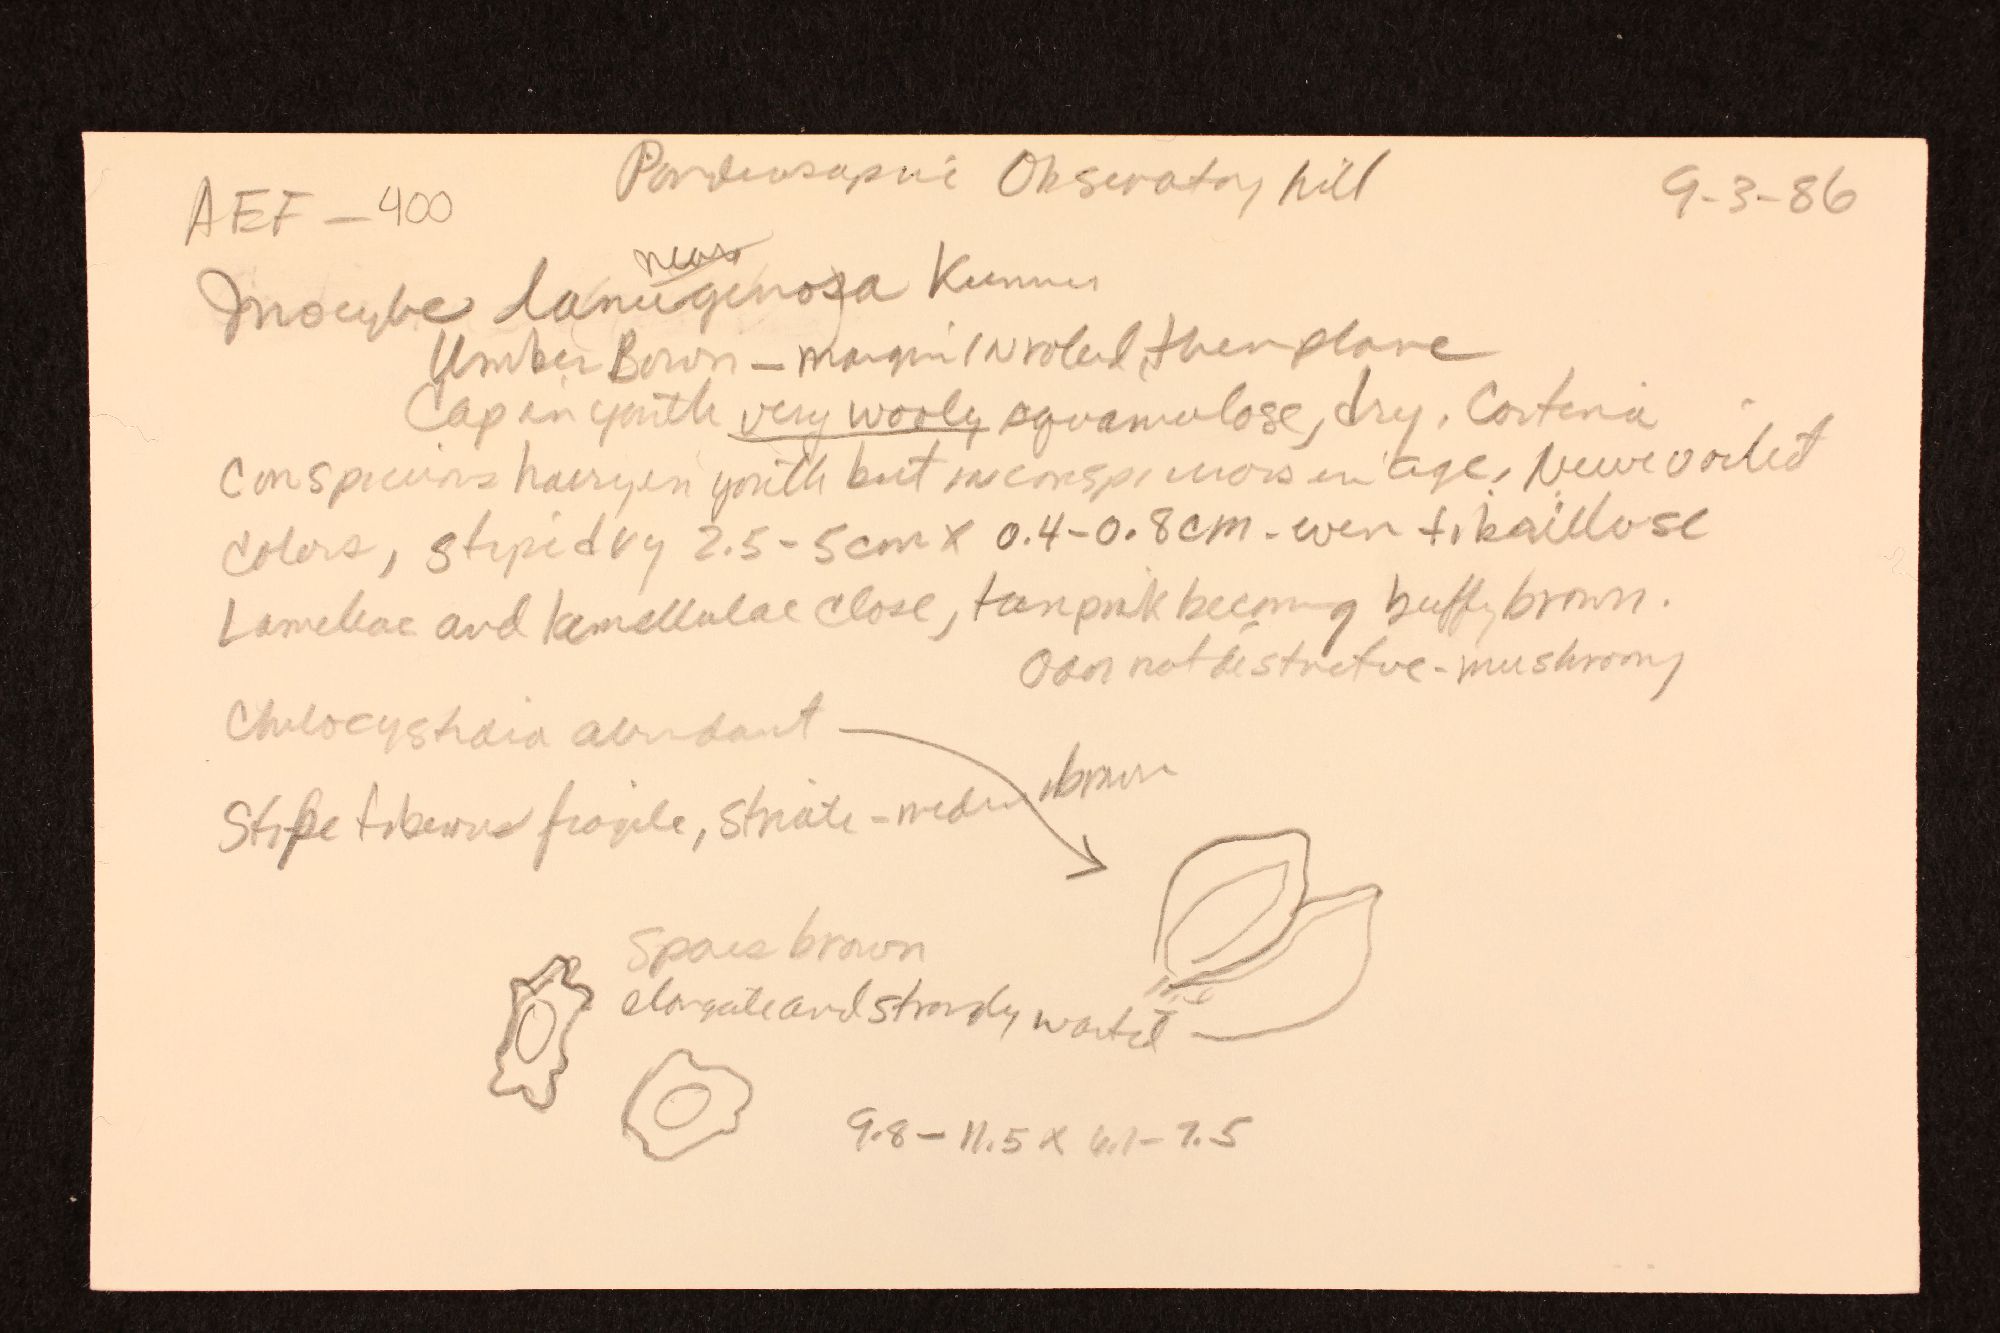 Observatory hill
9-3-86
AEF-400
near
Inocybe lanuginosa Kummer
Umber Bown - margin inroled, then plane
Cap in youth very wooly squamulose, dry. Cortina
conspicuous hairy in youth but inconspicuous in age.
colors, stipe dry 2.5-5cm x 0.4-0.8cm - even
Lamellae and lamellulae close, tan pink becoming buffy brown.
Odor not distinctive - mushroomy
Cheilocystidia abundant
Stipe fragile, striate - medium brown
Spores brown
elongate and strongly warted
9.8-11.5 x 6.1-7.5